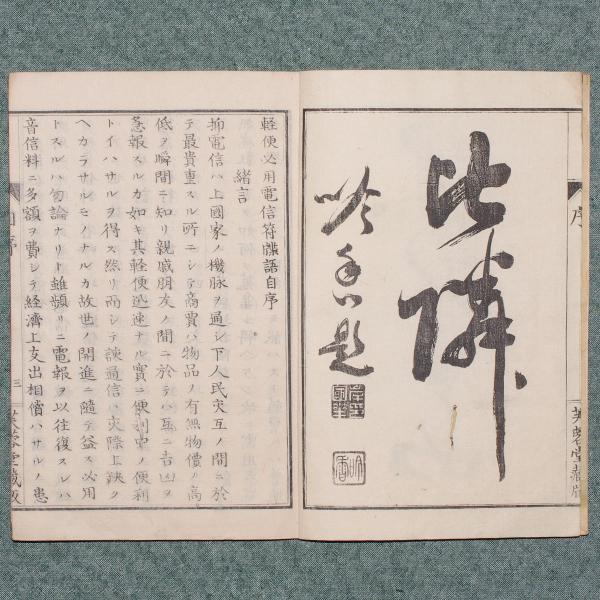 比隣
題
序
芙蓉堂蔵版
軽便必用電信符牒語自序
緒言
抑電信ハ上國家ノ機脉ヲ通シ下人民交互ノ間ニ於
テ最貴重スル所ニシテ高賈ハ物品ノ有無物價ノ高
低ヲ瞬間ニ知リ親戚朋友ノ間ニ於テハ互ニ吉凶ヲ
急報スルカ如キ其軽便迅速ナル實ニ便利中ノ便利
トイハサルヲ得ス然リ而シテ該通信ハ交際上缺ク
ヘカラサルモノナルカ故世ノ開進ニ隨テ益ス必用
トスルハ勿論ナリト雖頻リニ電報ヲ以往復スレハ
音信料ニ多額ヲ費シテ経濟上支出相償ハサルノ患
自序
三
芙蓉堂蔵版